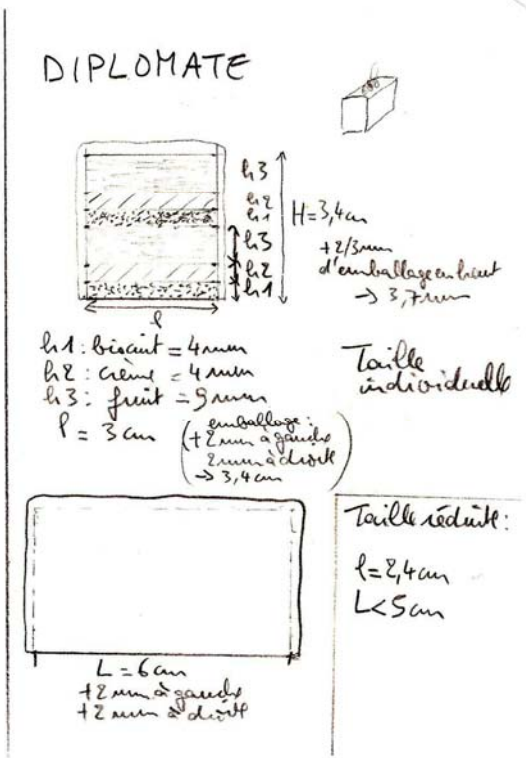 DIPLOMATE
h3
h2
h1
h3
h2
h1
H=3,4cm
+2/3mm
d'emballage en haut
→ 3,7mm
l
h1: biscuit = 4mm
h2: crème = 4mm
h3: fruit = 9mm
l = 3cm
(emballage:
+2mm à gauche
2mm à droite
→ 3,4cm)
Taille
individuelle
L = 6cm
+2mm à gauche
+2mm à droite
Taille réduite:
l=2,4cm
L<5cm